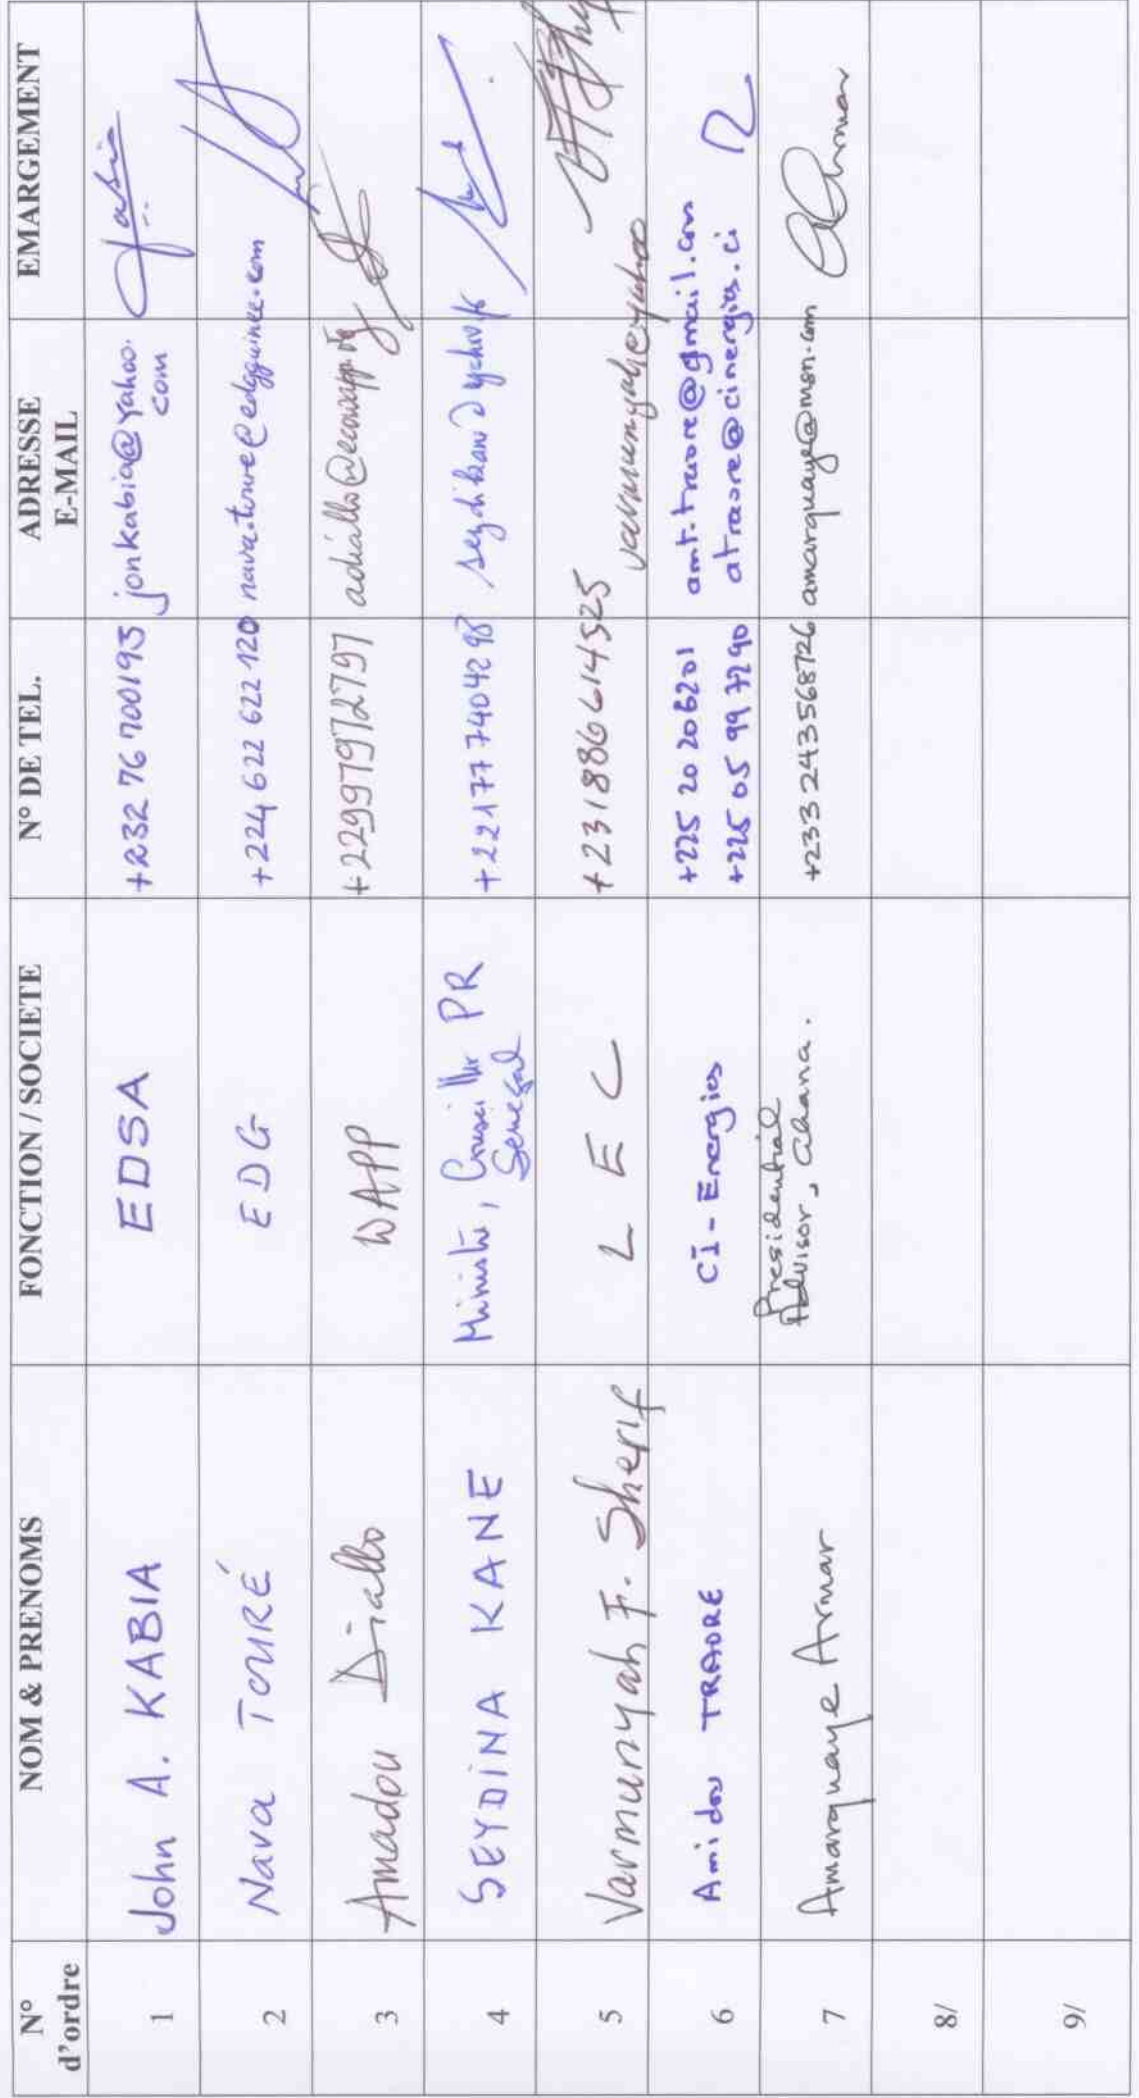 N° d'ordre NOM & PRENOMS FONCTION / SOCIETE N° DE TEL. ADRESSE E-MAIL EMARGEMENT
1 John A. KABIA EDSA +232 76 700193 jonkabia@yahoo.com
2 Nava TOURÉ EDG +224 622 622 120 nava.toure@edgguinee.com
3 Amadou Diallo WAPP +22997972797 adiallo@ecowapp.org
4 SEYDINA KANE Ministre, Conseiller PR Senegal +221777404298
5 Varmunyah F. Sherif L E C +231886614525
6 Amidou TRAORE CI-Energies +225 20 206201 amt.traore@gmail.com
+225 05 99 7290 atraore@cinergies.ci
7 Amarquaye Armar Presidential Advisor, Ghana. +233 243568726 amarquaye@msn.com
8/
9/